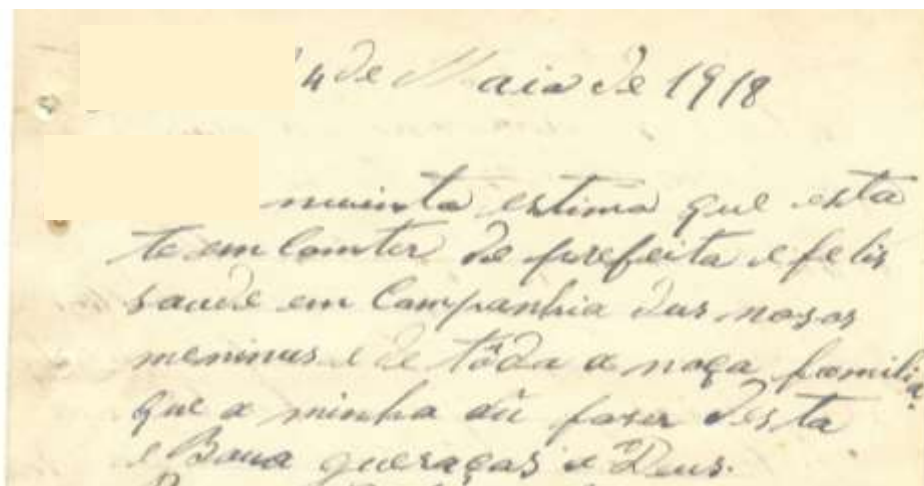 4 de Maio de 1918
muinta estima que esta
te emComter de prefeita e felis
saude em Companhia dus nosos
meninus e de tôda a noça familia
que a minha au faser desta
e Boua gueraças a Deus.